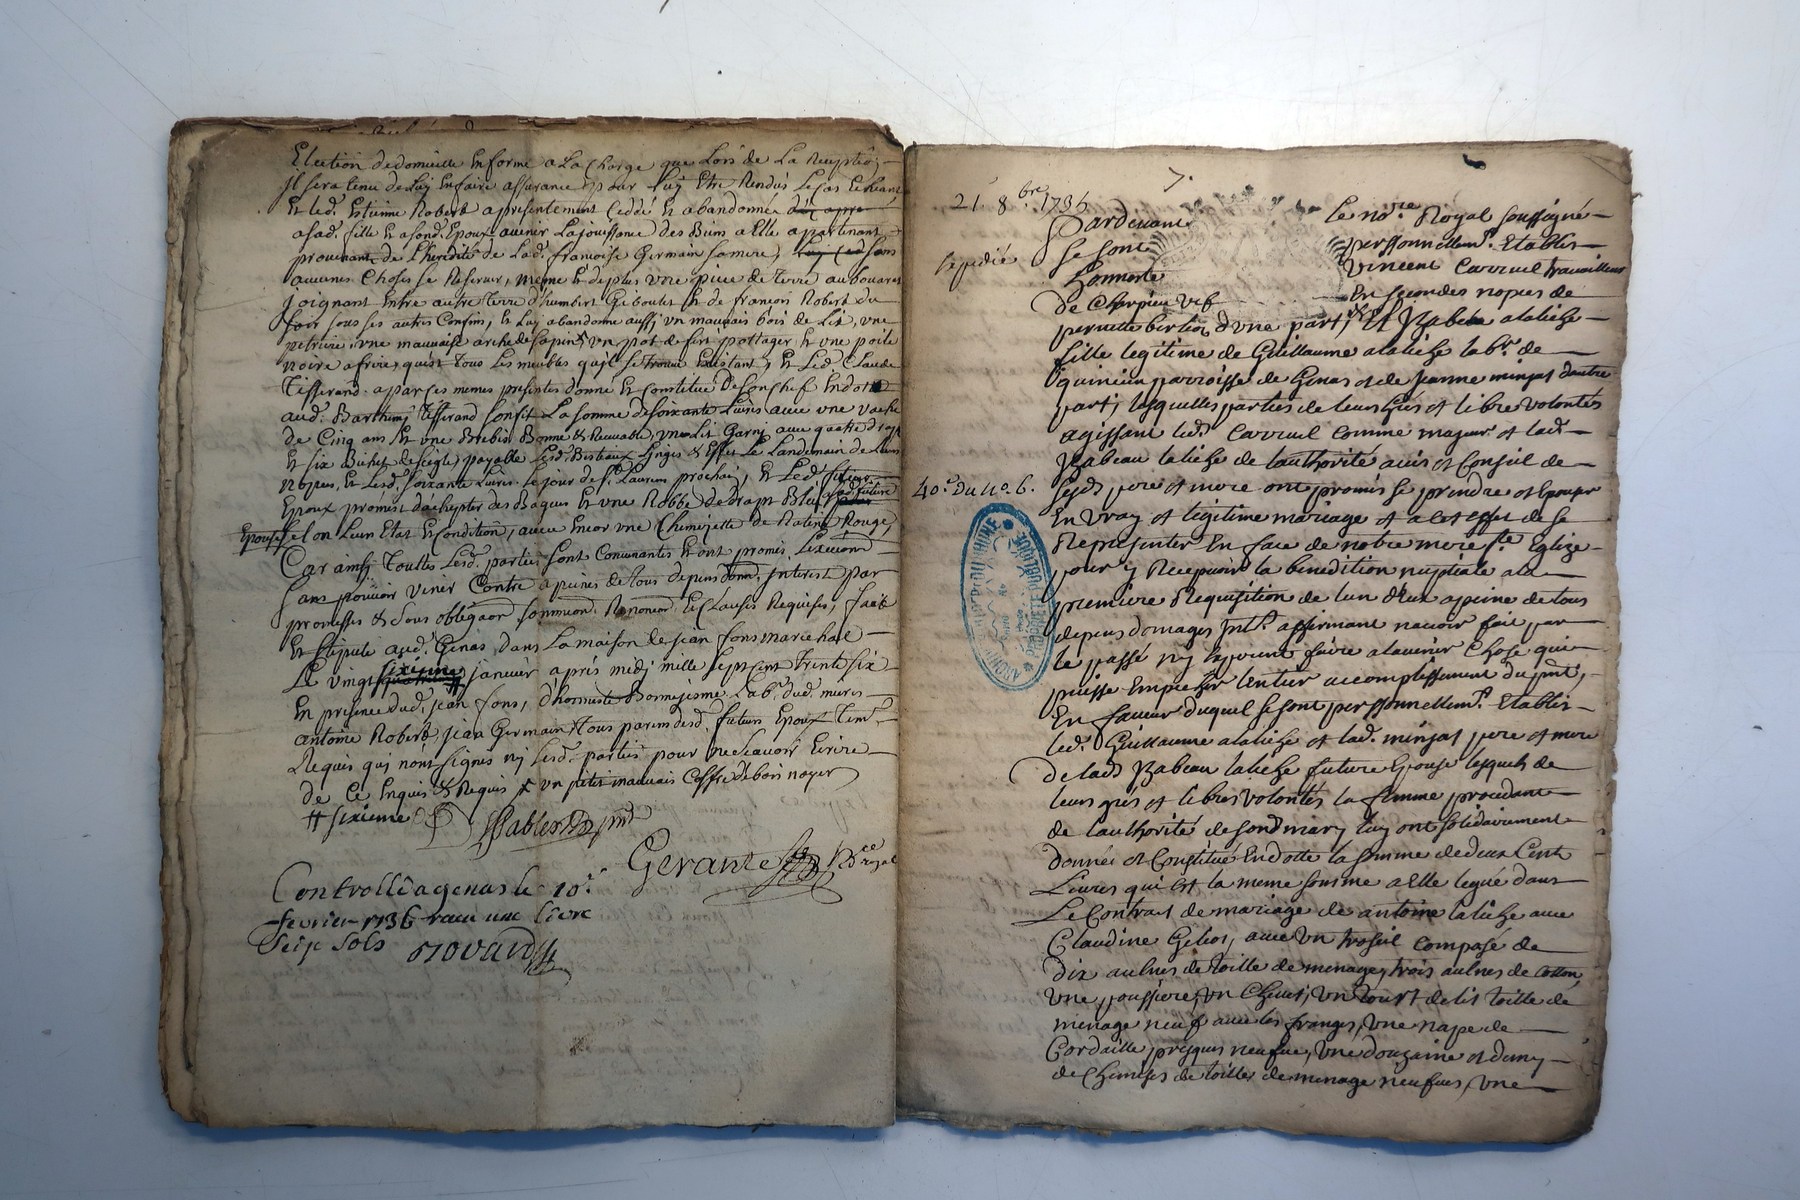 Election de domicille En forme a La Charge que Lors de La Reception
jl sera tenu de Luy En faire assurance pour Luy Etre Rendus Le Cas Echeant
Et led. Estienne Robert a presentement Ceddé Et abandonnée
a sad. fille Et a sond. Epoux avenir La jouissance des Biens a Elle apartenant
provenants de L'heredité de Lad. francoise Germain sa mere, sans
aucunes Choses se Reserver, meme Et de plus une piece de terre au bouaret
joignant Entre autre terre d'humbert Giboulet Et de francois Robert du
soir sous ses autres Confins, Et Luy abandonne aussj un mauvais bois de Lit, une
petriere, une mauvaise arche de sapin & un pot de fert pottager & une poile
noire a frire, qui est tous Les meubles qu'il se trouve Existant, Et Led. Claude
Tisserand a par ces memes presentes donné Et Constitué de son Chef En dotte
aud. Barthemj Tisserand son fil La somme de soixante Livres avec une vache
de Cinq ans Et une Brebis Bonne & Recevable, un Lit Garnj avec quatre draps
Et six Bichet de seigle, payable Lesd. Bestiaux Linges & Effet Le Landemain de Leurs
Nopces, Et Lesd. soixante Livres Le jour de st. Laurens prochain, Et Led. futur
Epoux promést d'achepter des Bagues Et une Robbe de drapt Bleu a sad. future
Epouse selon Leur Etat & Condition, avec Encor une Chemizette de Ratine Rouge,
Car ainsj Touttes Lesd. parties sont Convenantes Et ont promis
sans pouvoir venir Contre a peines de tous depens dom. interest par
promesses & sous obligaon soumission Renonciaon & Clauses Requises, fait
Et stipulé aud. Genas dans La maison de jean fons marechal
Le vingt sixieme janvier aprés midj mille sept cent trente six
En presence dud. jean fons, d'honneste Lab. dud. mures
antoine Robert, jean Germain tous parens desd. futurs Epoux tem.
Requis quj n'ont signés nj Lesd. parties pour ne scavoir Ecrire
de Ce Enquis & Requis + un petit mauvais Coffre de bois noyer
# sixieme
Sablon pnt
Gerante Nre royal
Controllé a genas le 10e
fevrier 1736 receu une livre
seize sols Rovard
7.
21. 8bre. 1736
Expedié
Pardevant le nore. Royal soussigné
se sont personnellemt. Etablis
honnorte Vincent Carreul travailleur
de Charpieu vef En secondes nopces de
pernette bertion d'une part, Et Yzabeau alaliche
fille legitime de Guillaume alaliche labr. de
quincieu parroisse de Genas et de jeanne minjat d'autre
part, lesquelles parties de leurs grés et libre volontés
agissant led. Carreul comme majeur et lad.
Yzabeau laliche de lauthorité avis et Conseil de
40e. du no. 6.
sesds pere et mere ont promis se prendre et Epouser
En vray et legitime mariage et a cet effet de se
Representer En face de notre mere ste. Eglize
pour y Recepvoir la benediction nuptiale a la
premiere Requisition de l'un d'eux a peine de tous
depens domages Intt. affirmant n'avoir fait par
le passé ny ne faire a l'avenir Chose qui
puisse Empecher l'entier accomplissement du pnt,
En faveur duquel se sont personnellemt. Etablis
led. Guillaume alaliche et lad. minjat pere et mere
de lads Yzabeau laliche future Epouse lesquels de
leurs grés et libres volontés la femme procedant
de lauthorité de sond mary luy ont solidairement
donnés et Constitué En dotte la somme de deux Cent
Livres qui est la meme somme a Elle legué dans
Le Contrat de mariage de antoine laliche avec
Claudine Gelios, avec un trosseil composé de
dix aulnes de toille de menage, trois aulnes de cotton,
une poussiere, un Chalit, un tourt de lit toille de
menage neuf avec les franges, une nape de
Cordaille presques neufve, une douzaine et demy
de Chemises de toille de menage neufves, une